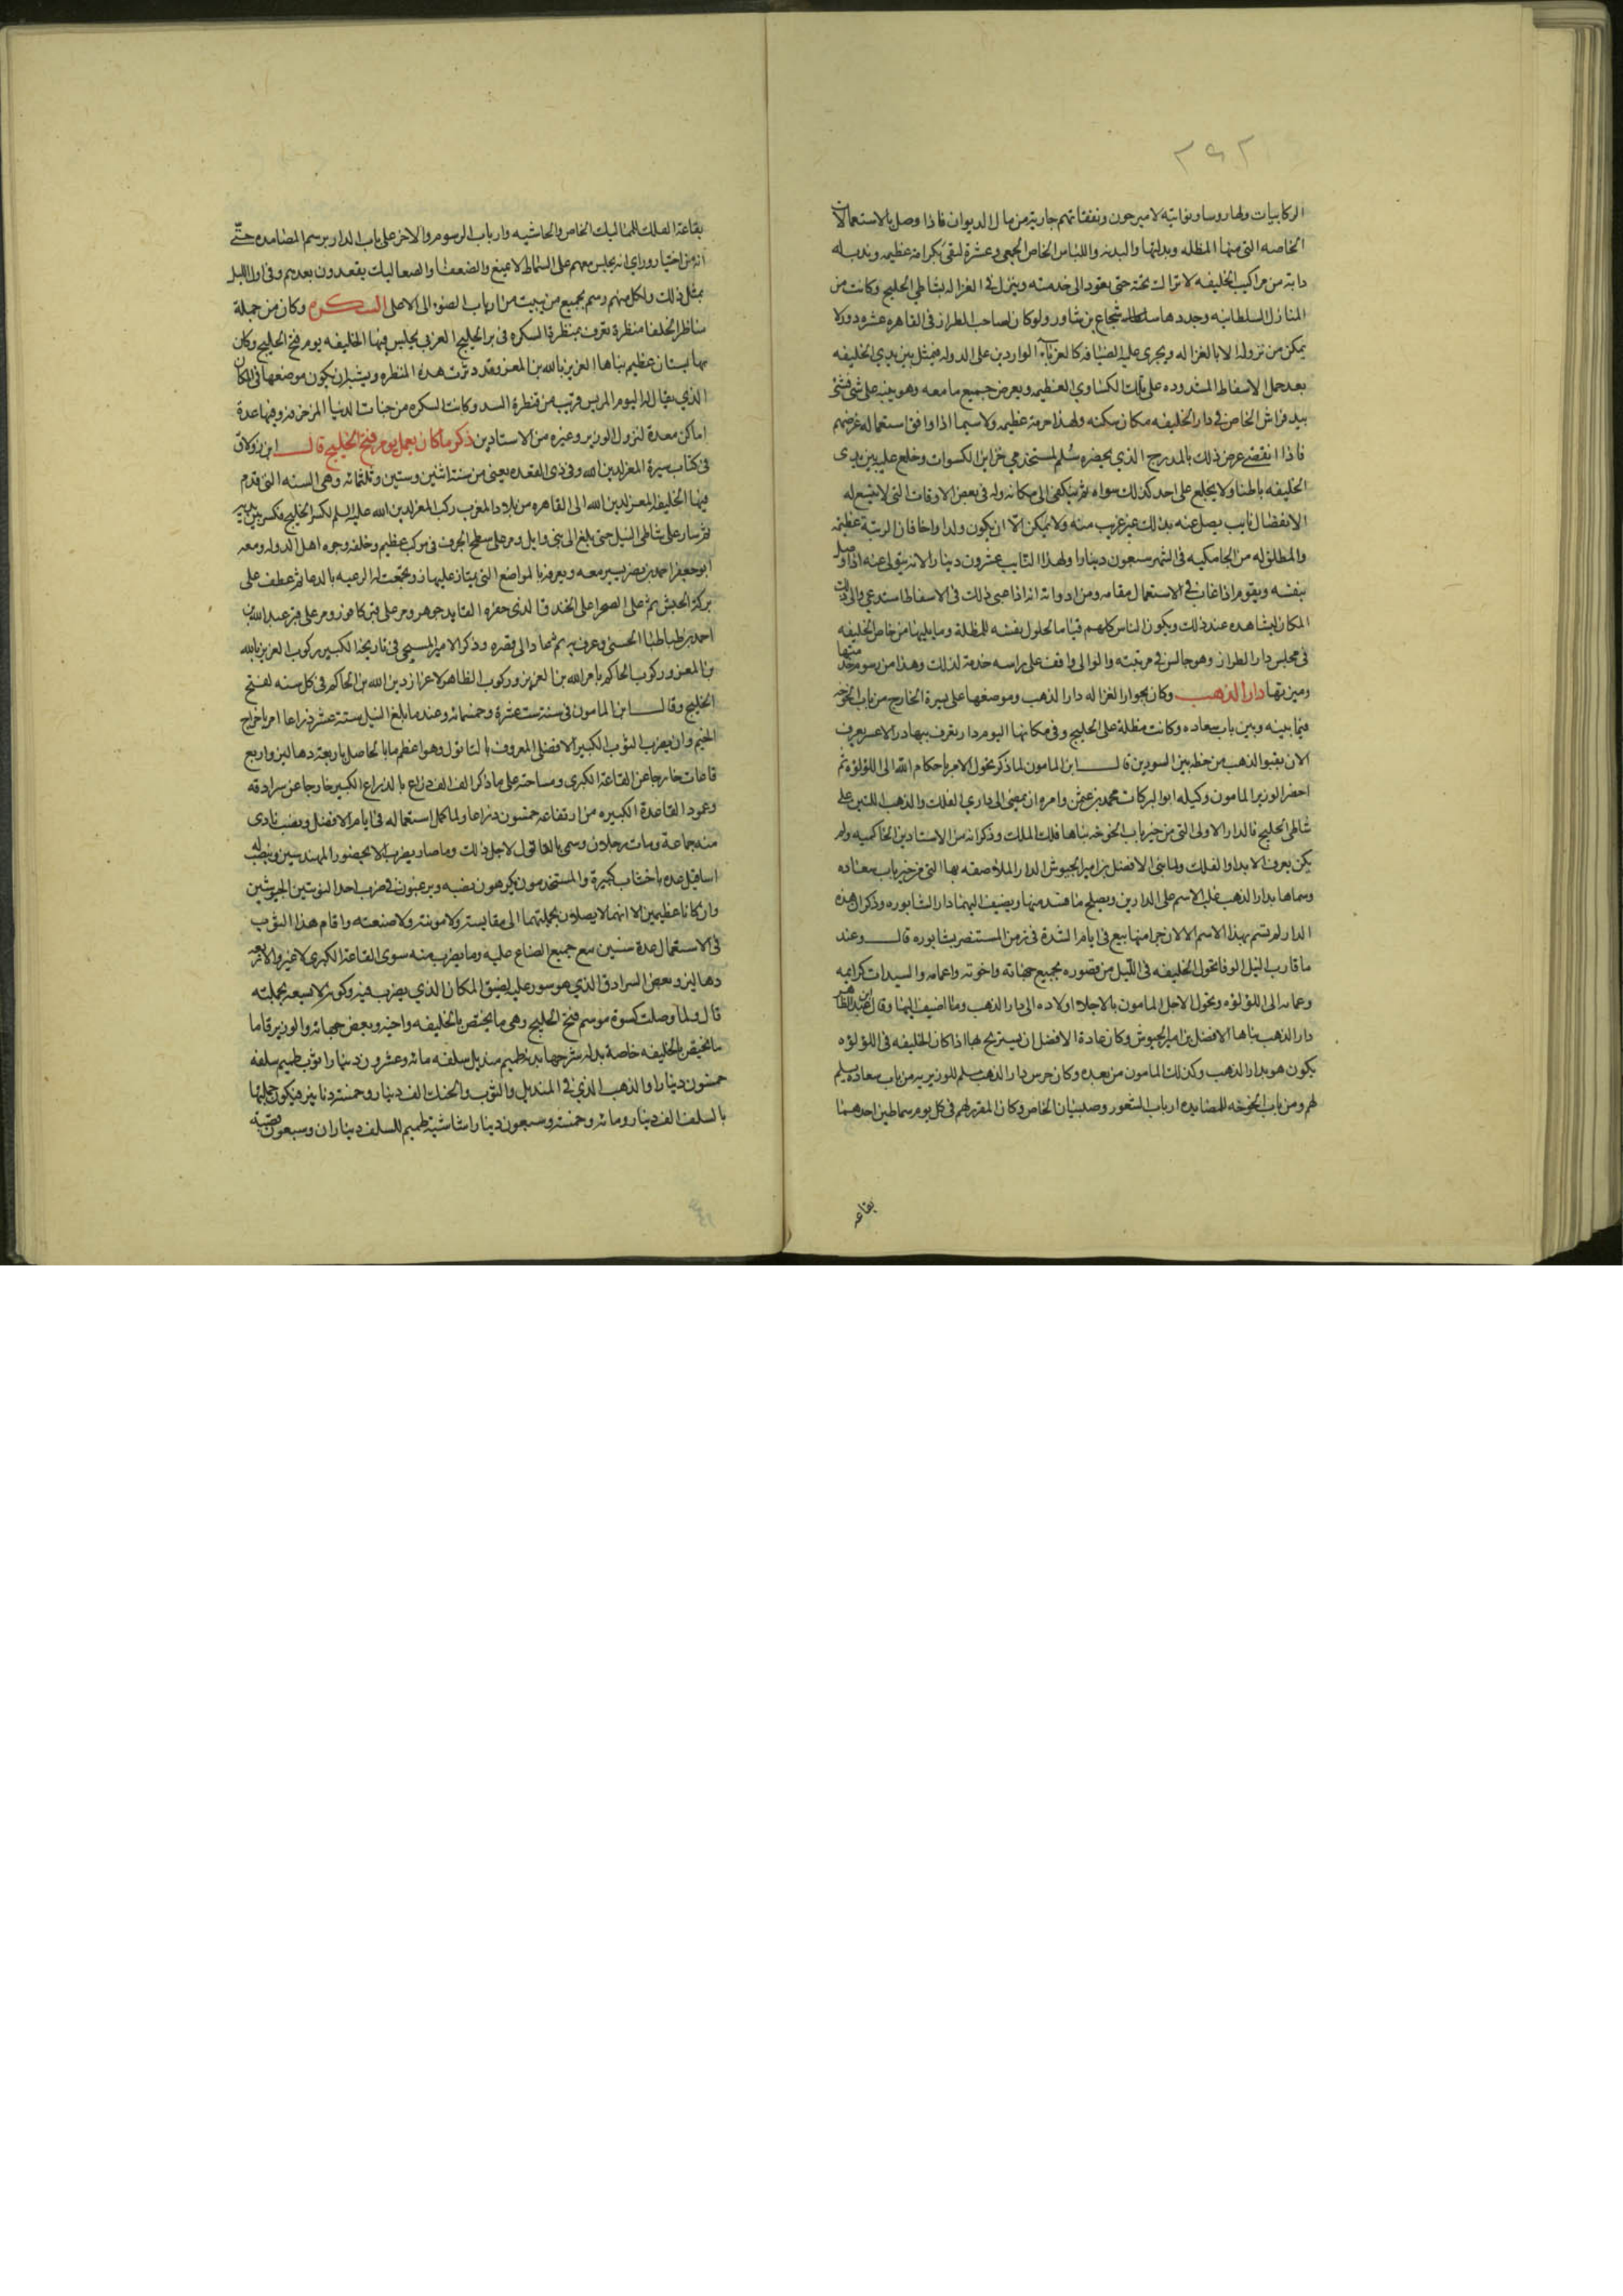 ٢٩٢
الركابيات ولها روسا ونواتيه لا يبرحون ونفقاتهم جارية من مال الديوان فاذا وصل بالاستعمالات
الخاصه التى منها المظله وبدلتها والبدنه واللباس الخاص الجمعى وغيره لقى بكرامة عظيمه وندب له
دابة من مراكيب الخليفه لا تزال تحته حتى يعود الى خدمته وينزل فى الغزاله بشاطى الخليج وكانت من
المناظر السلطانيه وجددها شجاع بن شاور ولو كان لصاحب الطراز فى القاهره عشره دور لا
يمكن من نزوله الا بالغزاله ويجرى عليه الضيافه كالغربا الواردين على الدوله فيمثل بين يدى الخليفه
بعد حمل الاسفاط المشدوده على تلك الكساوى العظيمه ويعرض جميع ما معه وهو ينبه على شى فشى
بيد فراش الخاص فى دار الخليفه مكان سكنه ولهذا حرمة عظيمه ولاسيما اذا وافق استعماله غرضهم
فاذا انقضى عرض ذلك بالمدرج الذي يحضره سُلم لمستخدمى خزاين الكسوات وخلع عليه بين يدى
الخليفه باطنا ولا يخلع على احد كذلك سواه ثم ينكفى الى مكانه وله فى بعض الاوقات التى لا يتسع له
الانفصال نايب يصل عنه بذلك غير غريب منه ولا يمكن الا ان يكون ولدا او اخا فان الرتبة عظيمه
والمطلق له من الجامكيه فى الشهر سبعون دينارا ولهذا النايب عشرون دينارا لانه يتولى عنه اذا وصل
بنفسه ويقوم اذا غاب فى الاستعمال مقامه ومن ادواته انه اذا عبى ذلك فى الاسفاط استدعى والى ذلك
المكان ليشاهده عند ذلك ويكون الناس كلهم قياما لحلول نفس المظلة وما يليها من خاص الخليفه
فى مجلس دار الطراز وهو جالس فى مرتبته والوالى واقف على راسه خدمة لذلك وهذا من رسوم خدمتها
وميزتها دار الذهب وكان بجوار الغزاله دار الذهب وموضعها على يسرة الخارج من باب الخوخه
فيما بينه وبين باب سعاده وكانت مطلة على الخليج وفى مكانها اليوم دار تعرف ببهادر الاعسر يعرف
الان بقبو الذهب من خط بين السورين قال ابن المامون لما ذكر تحول الامر باحكام الله الى اللؤلؤه ثم
احضر الوزير المامون وكيله ابو البركات محمد بن عثمن وامره ان يمضى الى داري الفلك والذهب اللتين على
شاطى الخليج فالدار الاولى التى من خير باب الخوخه بناها فلك الملك وذكر انه من الاستادين الحاكميه ولم
يكن يعرف الا بدار الفلك ولما بنى الافضل بن امير الجيوش الدار الملاصقه بها التى من خير باب سعاده
وسماها بدار الذهب غلب الاسم على الدارين ويصلح ما فسد منها ويضيف اليهما دار الشابوره وذكر ان هذه
الدار لم تسم بهذا الاسم الا لان جزا منها بيع فى ايام الشدة فى زمن المستنصر بشابوره قال وعند
ما قارب النيل الوفا تحول الخليفه فى الليل من قصوره بجميع جهاته واخوته واعمامه والسيدات كرايمه
وعماته الى اللؤلؤه وتحول الاجل المامون بالاجلا اولاده الى دار الذهب وما اضيف اليها وقال ابن عبد الظاهر
دار الذهب بناها الافضل بن امير الجيوش وكان عادة الافضل ان يستريح بها اذا كان الخليفه فى اللؤلؤه
يكون هو بدار الذهب وكذلك المامون من بعده وكان حرس دار الذهب يسلم للوزيريه من باب سعاده يسلم
لهم ومن باب الخوخه للمصامده ارباب الشعور وصبيان الخاص وكان المقرر لهم فى كل يوم سماطين احدهما
بقاعه
بقاعة الفلك للمماليك الخاص والحاشيه وارباب الرسوم والاخر على باب الدار برسم المصامده حتى
انه من اختار وراى انه يجلس معهم على السماط لا يمنع والضعفا والصعاليك يقعدون بعدهم وفى اول الليل
بمثل ذلك ولكل منهم رسم بجميع من يبيت من ارباب الضو الى الاصلى السكره وكان من جملة
مناظر الخلفا منظرة تعرف بمنظرة السكره فى بر الخليج الغربى يجلس فيها الخليفه يوم فتح الخليج وكان
بها بستان عظيم بناها العزيز بالله بن المعز وقد دثرت هذه المنظره ويشبه ان يكون موضعها فى المكان
الذي يقال له اليوم المريس قريب من قنطرة السد وكانت السكره من جنات الدنيا المزخرفه وفيها عدة
اماكن معدة لنزول الوزير وغيره من الاستادين ذكر ما كان يعمل يوم فتح الخليج قال ابن زولاق
فى كتاب سيرة المعز لدين الله وفى ذى القعده يعنى من سنة اثنين وستين وثلثمائه وهى السنه التى قدم
فيها الخليفه المعز لدين الله الى القاهره من بلاد المغرب ركب المعز لدين الله عليه السلم لكسر الخليج فكسر بين يديه
ثم سار على شاطى النيل حتى بلغ الى بنى وايل ومر على سطح الجرف فى موكب عظيم وخلفه وجوه اهل الدوله ومعه
ابو جعفر احمد بن نصر يسير معه ويعرفه بالمواضع التى يجتاز عليها ونجعت له الرعيه بالدعا ثم عطف على
بركة الحبش ثم على الصحرا على الخندق الذى حفره القايد جوهر ومر على قبر كافور ومر على قبر عبد الله بن
احمد بن طباطبا الحسنى وعرف به ثم عاد الى قصره وذكر الامير المسبحى فى تاريخه الكبير ركوب العزيز بالله
بن المعز وركوب الحاكم بامر الله بن العزيز وركوب الظاهر لاعزاز دين الله بن الحاكم فى كل سنه لفتح
الخليج وقال ابن المامون فى سنة ست عشرة وخمسمائه وعندما بلغ النيل ستة عشر ذراعا امر باخراج
الخيم وان يضرب الثوب الكبير الافضلى المعروف بالقاتول وهو اعظم ما بالحاصل باربعة دهاليز واربع
قاعات خارجا عن القاعة الكبرى ومساحته على ما ذكر الف الف ذراع بالذراع الكبير خارجا عن سرادقه
وعمود القاعدة الكبيره منه ارتفاعه خمسون ذراعا ولما كمل استعماله فى ايام الافضل ونصب تاذى
منه جماعة ومات رجلان وسمى بالقاتول لاجل ذلك وما صار يضرب الا بحضور المهندسين وينصب له
اساقيل عده باخشاب كثيرة والمستخدمون يكرهون نصبه ويرغبون فى ضرب احد الثوبين الجيوشيين
وان كانا عظيمين الا انهما لا يصلان بجملتهما الى مقايسته ولا مونته ولا صنعته واقام هذا الثوب
فى الاستعمال عدة سنين مع جميع الصناع عليه وما يضرب منه سوى القاعة الكبرى لا غير والاربعه
دهاليز وبعض السرادق الذي هو سور عليه لضيق المكان الذي يضرب فيه وكونه لا يسعه بجملته
قال ولما وصلت كسوة موسم فتح الخليج وهى ما يختص بالخليفه واخيه وبعض جهاته والوزير فاما
ما يختص بالخليفه خاصة بدله شرحها بدنه طميم منديل سلفه مائه وعشرون دينارا وثوب طميم سلفه
خمسون دينارا والذهب الذي فى المنديل والثوب والحنك الف دينار وخمسة دنانير فيكون جملتها
بالسلف الف دينار ومائه وخمسه وسبعون دينارا شاشية طميم للسلف ديناران وسبعون قصبة